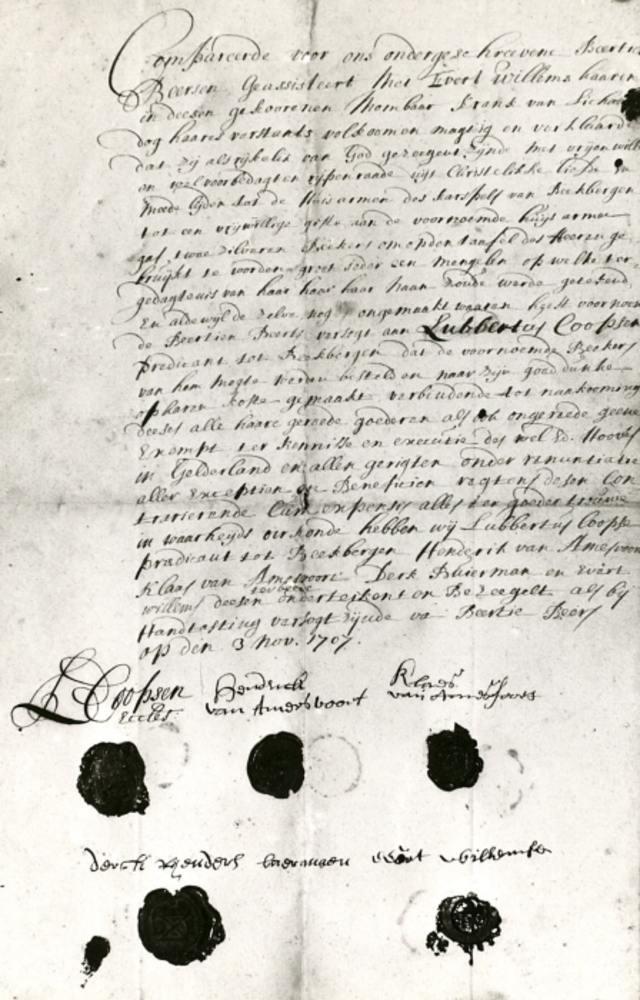 Compareerde voor ons ondergeschreevene Beertie
Beersen, Geassisteert Met Evert Willems haaren
in deesen gekoorenen Mombaar krank van Lichaam
dog haares verstants volkoomen magtig en verklaarde
dat zij als rijkelik van God gezeegent zijnde met vrijen wille
en wel voorbedagten rijpen raade uijt Christelikke liefde en
meede lijden tot de Huisarmen des karspels van Beekbergen
tot een vrijwillige gifte aan de voornoemde huijs armen
gaf, twee zilveren Beekers om onder taafel des Heeren ge
bruijkt te worden groot ieder een mengelen op welke ter
gedagtenis van haar haar haar Naam zoude werde geteekend,
En aldewijl de zelve nog ongemaakt waaren heeft voornoem
de Beertien Beerts versogt aan Lubbertus Coopsen
predicant tot Beekbergen dat de voornoemde Beekers
van hem mogte worden besteld en naar zijn goeddunke
op haren koste gemaakt verbindende tot naakooming
deeses alle haare gereede goederen als ook ongereede geene
Exempt ter kennisse en executie des wel Ed. Hooves
in Gelderland en allen gerigten onder renuntiatie
aller Exceptien en Beneficien regtens desen Con
trarieerende Cum expensis alles ter goeder trouwe
in waarheyds oirkonde hebben wij Lubbertus Coopse
predicant tot Beekbergen Henderik van Amersvoor
Klaas van Amersvoort Derk Buierman en Evert
willems deesen onderteikent en Bezeegelt als bij
Handtasting versogt zijnde van Beertie Beers
op den 3 Nov. 1707.
L Coopsen Hendrick Klaes
Eccles. van Amersvoort van Amersfoort
derck hendercks evert willemsen